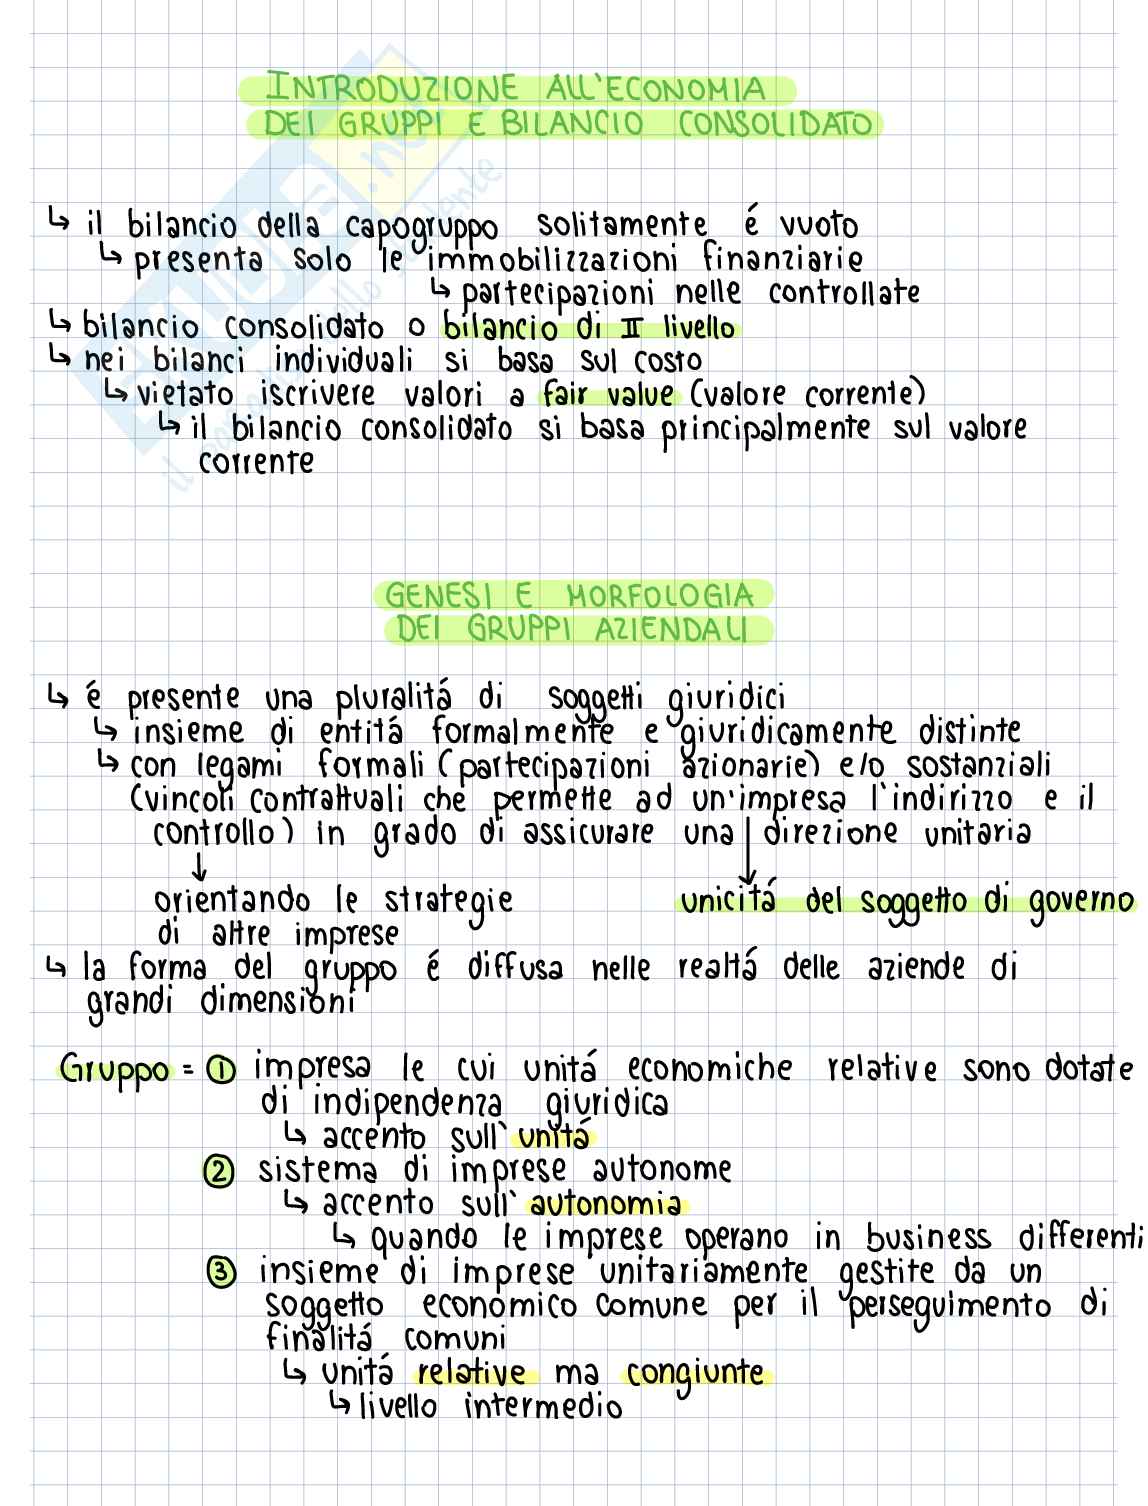 INTRODUZIONE ALL'ECONOMIA
DEI GRUPPI E BILANCIO CONSOLIDATO
↳ il bilancio della capogruppo solitamente é vuoto
↳ presenta solo le immobilizzazioni finanziarie
↳ partecipazioni nelle controllate
↳ bilancio consolidato o bilancio di II livello
↳ nei bilanci individuali si basa sul costo
↳ vietato iscrivere valori a fair value (valore corrente)
↳ il bilancio consolidato si basa principalmente sul valore
corrente
GENESI E MORFOLOGIA
DEI GRUPPI AZIENDALI
↳ é presente una pluralitá di soggetti giuridici
↳ insieme di entitá formalmente e giuridicamente distinte
↳ con legami formali (partecipazioni azionarie) e/o sostanziali
(vincoli contrattuali che permette ad un'impresa l'indirizzo e il
controllo) in grado di assicurare una direzione unitaria
↓ ↓
orientando le strategie unicitá del soggetto di governo
di altre imprese
↳ la forma del gruppo é diffusa nelle realtá delle aziende di
grandi dimensioni
Gruppo = ① impresa le cui unitá economiche relative sono dotate
di indipendenza giuridica
↳ accento sull'unitá
② sistema di imprese autonome
↳ accento sull'autonomia
↳ quando le imprese operano in business differenti
③ insieme di imprese unitariamente gestite da un
soggetto economico comune per il perseguimento di
finalitá comuni
↳ unitá relative ma congiunte
↳ livello intermedio